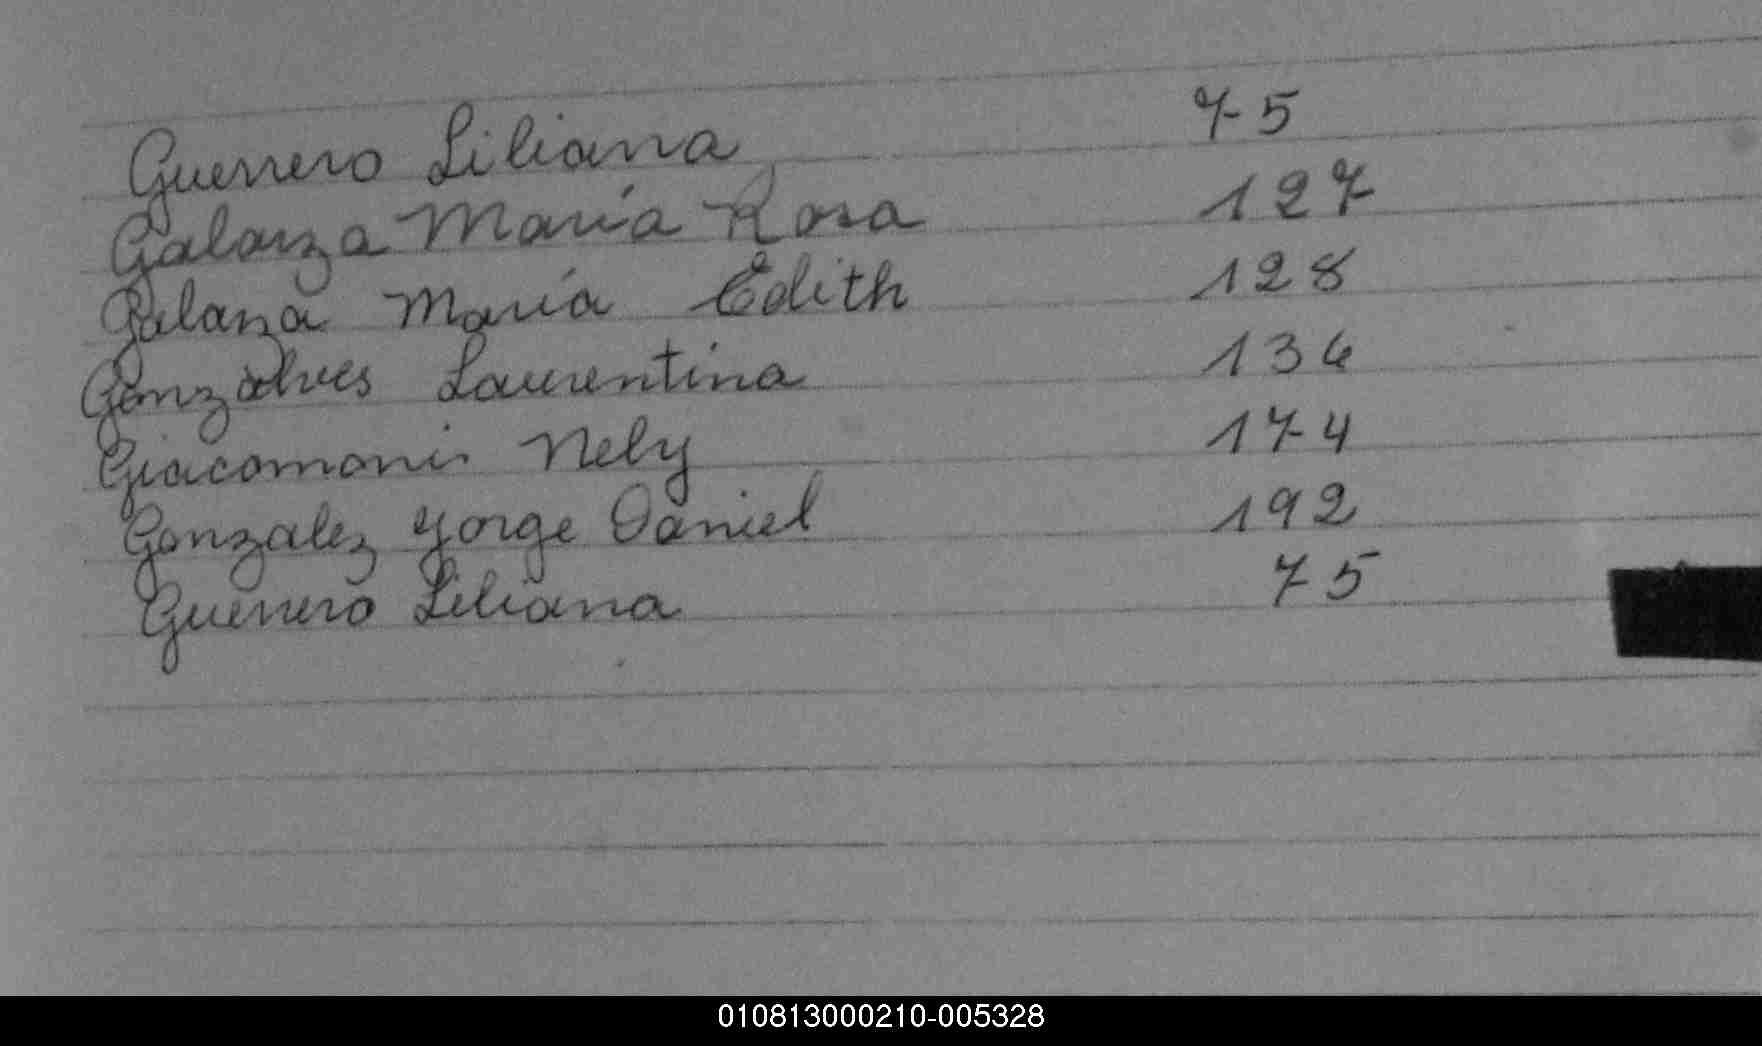 Guerrero Liliana 75
Galarza María Rosa 127
Galarza María Edith 128
Gonzalves Laurentina 136
Giacomoni Nely 174
Gonzalez Jorge Daniel 192
Guerrero Liliana 75
010813000210-005328